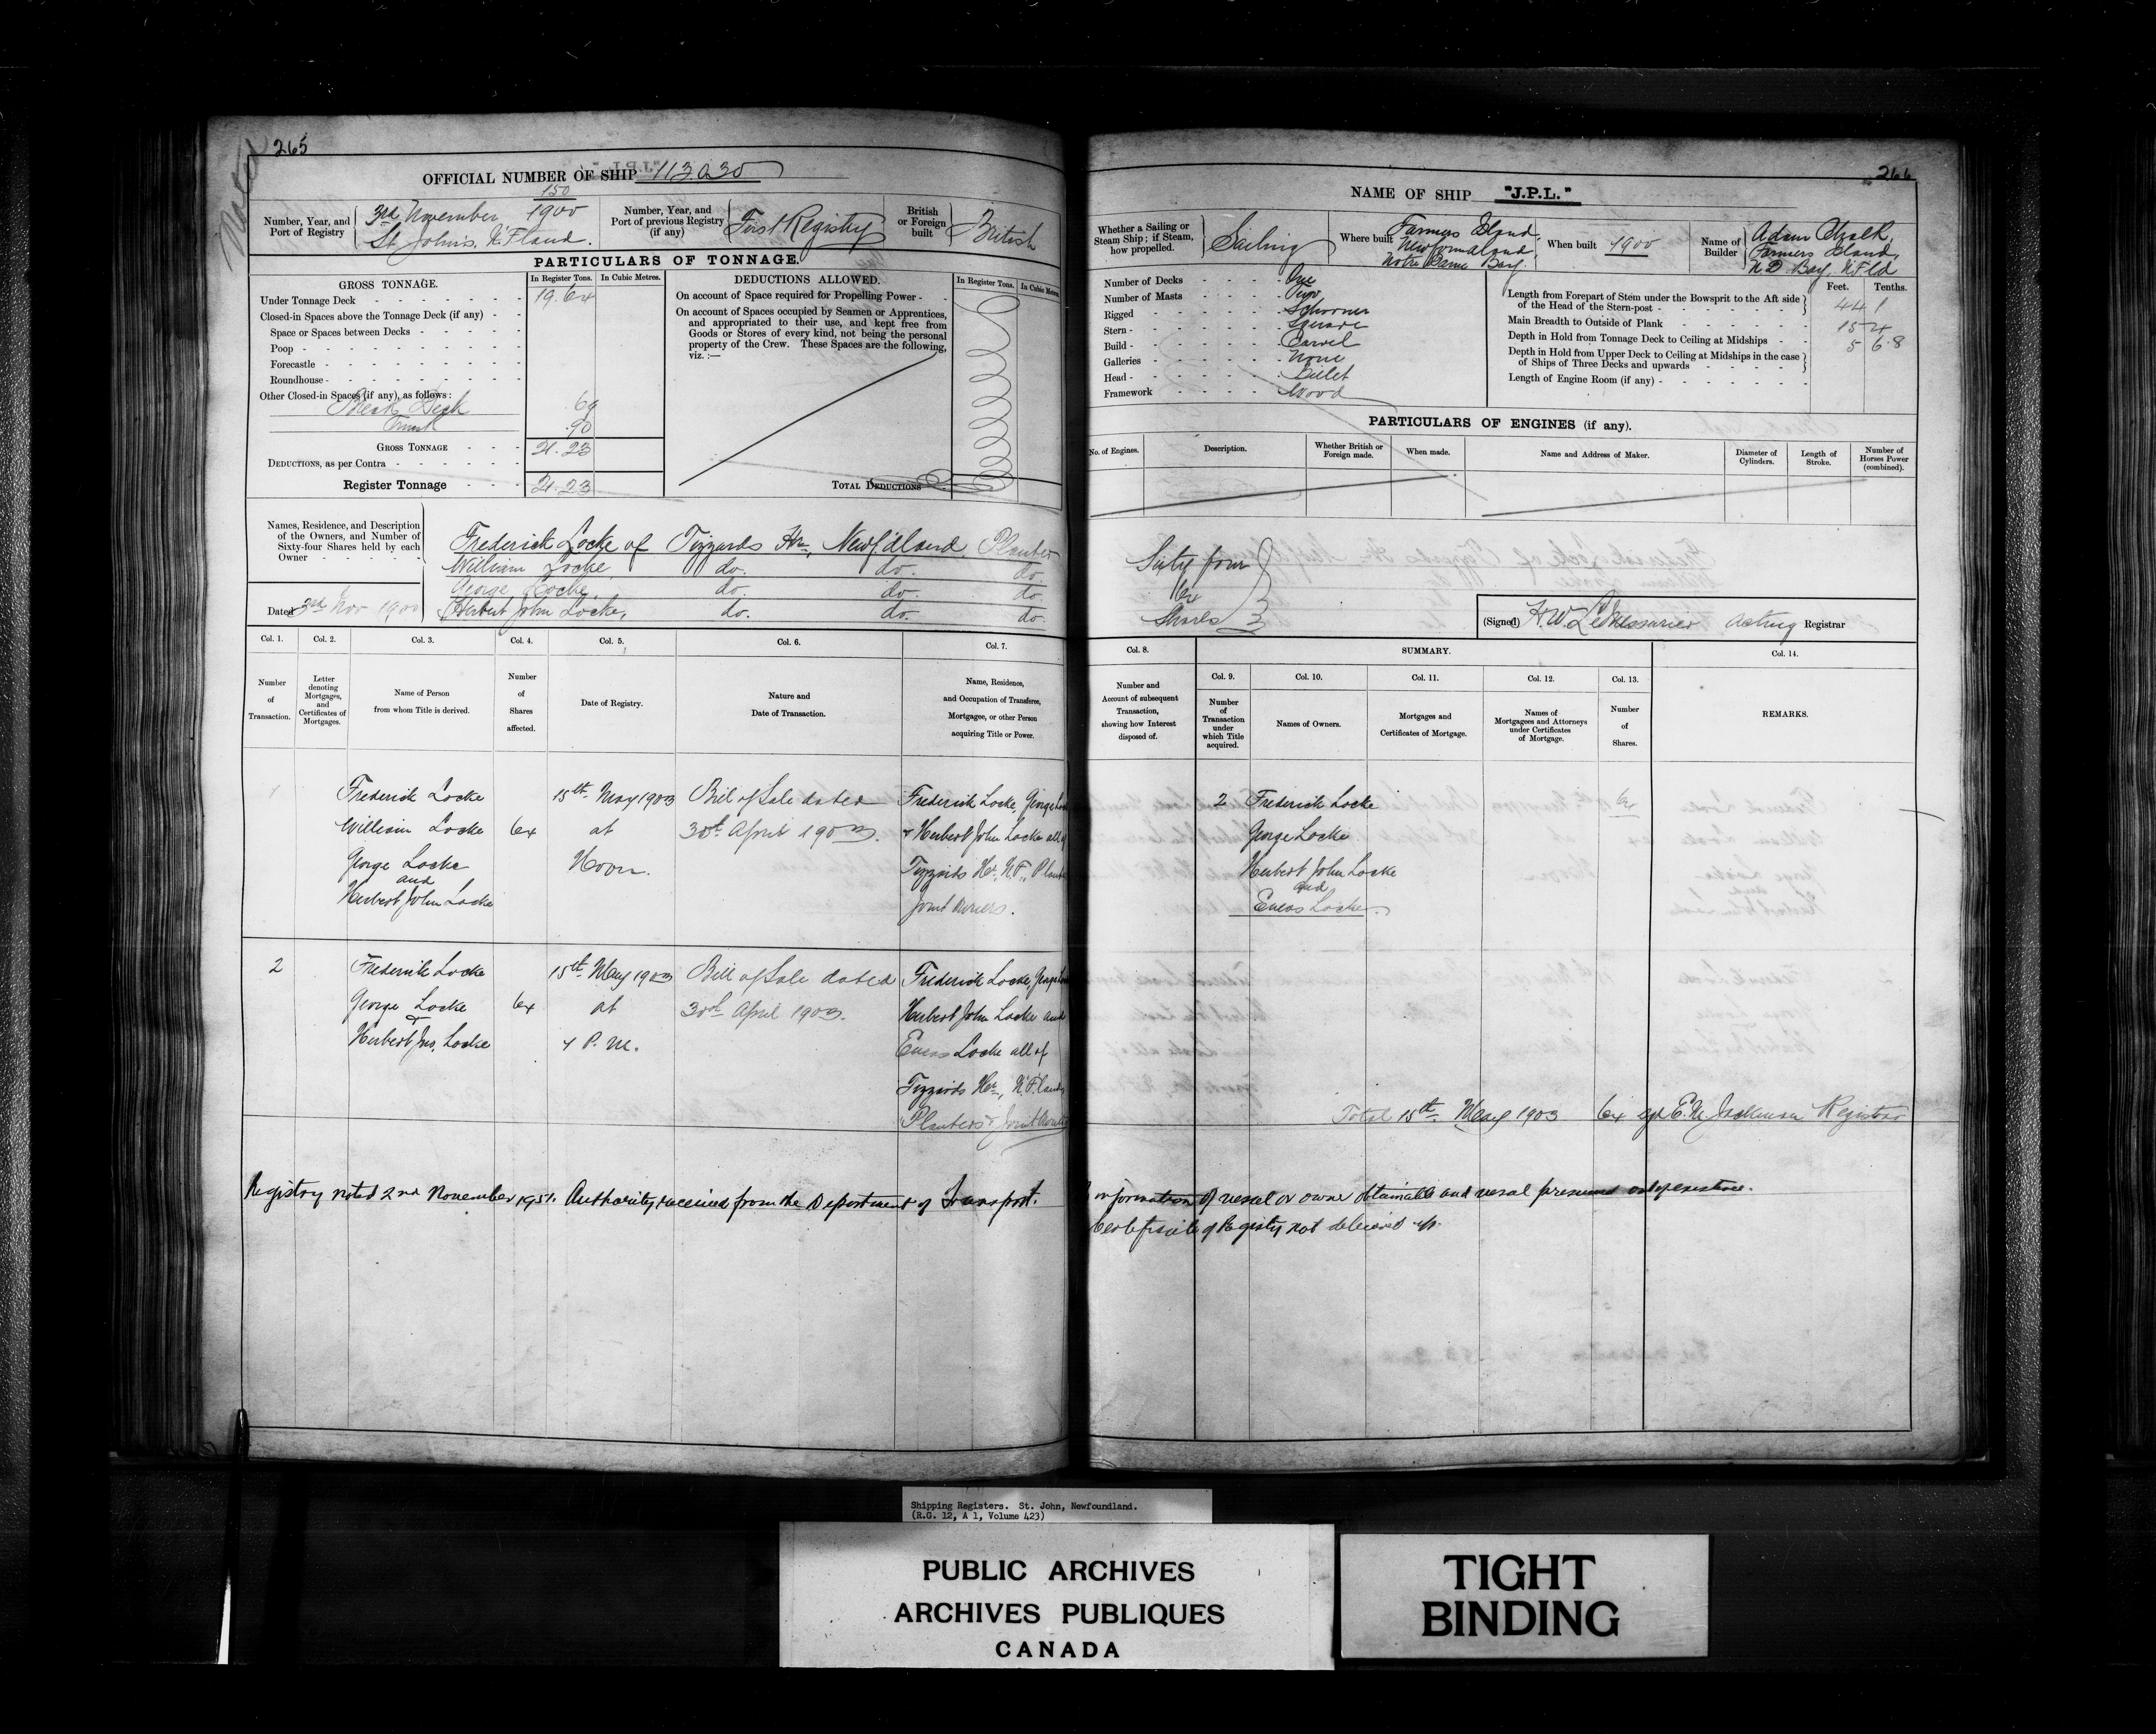 265
Noted
OFFICIAL NUMBER OF SHIP 113.030
Number, Year, and Port of Registry
150
3rd November 1900
St John's, N'F'land.
Number, Year, and Port of previous Registry (if any)
First Registry
British or Foreign built
British
PARTICULARS OF TONNAGE.
GROSS TONNAGE.
In Register Tons. In Cubic Metres.
Under Tonnage Deck 19.64
Closed-in Spaces above the Tonnage Deck (if any)
Space or Spaces between Decks
Poop
Forecastle
Roundhouse
Other Closed-in Spaces (if any), as follows:
Break Deck .69
Trunk .90
GROSS TONNAGE 21.23
DEDUCTIONS, as per Contra
Register Tonnage 21.23
DEDUCTIONS ALLOWED.
In Register Tons. In Cubic Metres.
On account of Space required for Propelling Power
On account of Spaces occupied by Seamen or Apprentices, and appropriated to their use, and kept free from Goods or Stores of every kind, not being the personal property of the Crew. These Spaces are the following, viz. :—
TOTAL DEDUCTIONS
Names, Residence, and Description of the Owners, and Number of Sixty-four Shares held by each Owner
Dated 3rd Nov 1900
Frederick Locke of Tizzards Hr, Newf'dland, Planter
William Locke, do. do. do.
George Locke, do. do. do.
Herbert John Locke, do. do. do.
Col. 1. Col. 2. Col. 3. Col. 4. Col. 5. Col. 6. Col. 7.
Number of Transaction.
Letter denoting Mortgages, and Certificates of Mortgages.
Name of Person from whom Title is derived.
Number of Shares affected.
Date of Registry.
Nature and Date of Transaction.
Name, Residence, and Occupation of Transferee, Mortgagee, or other Person acquiring Title or Power.
1
Frederick Locke
William Locke
George Locke
and
Herbert John Locke
64
15th May 1903
at
Noon.
Bill of Sale dated
30th April 1903.
Frederick Locke, George
& Herbert John Locke all of
Tizzards Hr, N.F.,
Joint Owners.
2
Frederick Locke
George Locke
&
Herbert Jno. Locke
64
15th May 1903
at
P.M.
Bill of Sale dated
30th April 1903.
Frederick Locke,
Herbert John Locke and
Eneas Locke all of
Tizzards Hr, N'F'land
Planters &
Registry noted 2nd November 1951. Authority received from the Department of Transport.
266
NAME OF SHIP "J.P.L."
Whether a Sailing or Steam Ship; if Steam, how propelled.
Sailing
Where built
Farmers Island,
Newfoundland,
Notre Dame Bay.
When built 1900
Name of Builder
Adam Chalk,
Farmers Island,
N.D. Bay, N'F'ld
Number of Decks One
Number of Masts Two
Rigged Schooner
Stern Square
Build Carvel
Galleries None
Head Billet
Framework Wood
Feet. Tenths.
Length from Forepart of Stem under the Bowsprit to the Aft side of the Head of the Stern-post 44 1
Main Breadth to Outside of Plank 15 4
Depth in Hold from Tonnage Deck to Ceiling at Midships 5 6.8
Depth in Hold from Upper Deck to Ceiling at Midships in the case of Ships of Three Decks and upwards
Length of Engine Room (if any)
PARTICULARS OF ENGINES (if any).
No. of Engines. Description. Whether British or Foreign made. When made. Name and Address of Maker. Diameter of Cylinders. Length of Stroke. Number of Horses Power (combined).
Sixty four
64
Shares
(Signed) H.W. LeMessurier Acting Registrar
Col. 8. SUMMARY. Col. 14.
Col. 9. Col. 10. Col. 11. Col. 12. Col. 13.
Number and Account of subsequent Transaction, showing how Interest disposed of.
Number of Transaction under which Title acquired.
Names of Owners.
Mortgages and Certificates of Mortgage.
Names of Mortgagees and Attorneys under Certificates of Mortgage.
Number of Shares.
REMARKS.
2
Frederick Locke
George Locke
Herbert John Locke
and
Eneas Locke
64
Total 15th May 1903 64 E.M. Jackman Registrar
information of vessel or owner obtainable and vessel presumed out of existence.
Certificate of Registry not delivered up.
Shipping Registers. St. John, Newfoundland.
(R.G. 12, A 1, Volume 423)
PUBLIC ARCHIVES
ARCHIVES PUBLIQUES
CANADA
TIGHT
BINDING